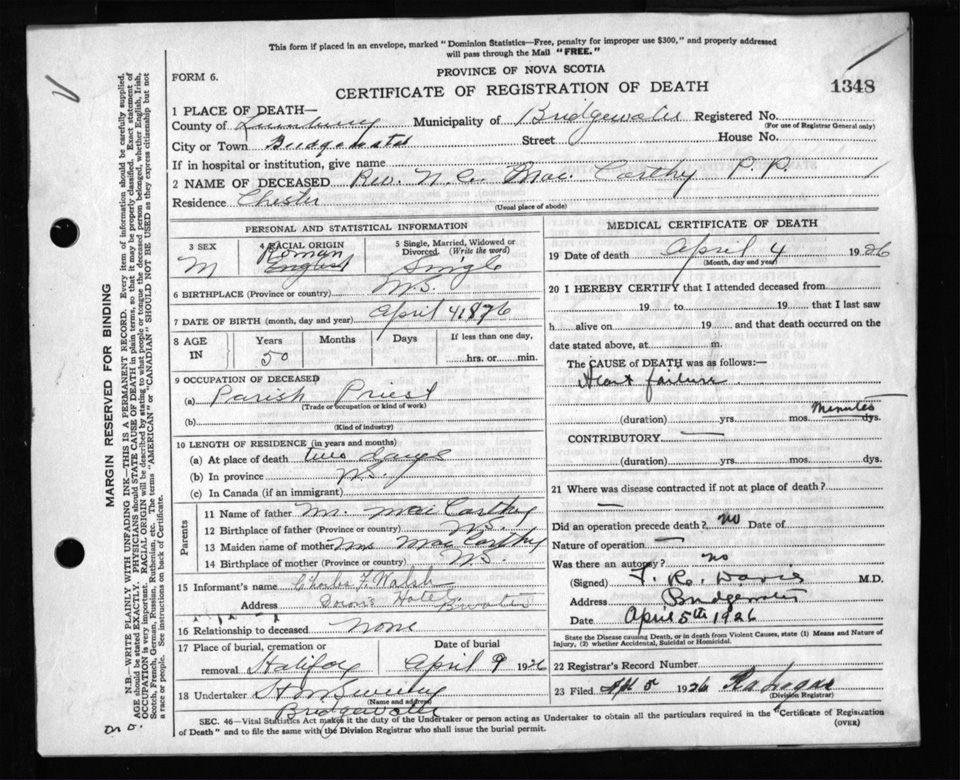 This form if placed in an envelope, marked "Dominion Statistics—Free, penalty for improper use $300," and properly addressed
will pass through the Mail "FREE."
FORM 6.
PROVINCE OF NOVA SCOTIA
CERTIFICATE OF REGISTRATION OF DEATH
1348
1 PLACE OF DEATH—
County of Lunenburg Municipality of Bridgewater Registered No.
(For use of Registrar General only)
City or Town Bridgewater Street House No.
If in hospital or institution, give name
2 NAME OF DECEASED Rev. Mac. Carthy P. P.
Residence Chester
(Usual place of abode)
PERSONAL AND STATISTICAL INFORMATION
3 SEX
M
4 RACIAL ORIGIN
Roman
English
5 Single, Married, Widowed or
Divorced. (Write the word)
Single
6 BIRTHPLACE (Province or country) N.S.
7 DATE OF BIRTH (month, day and year) April 4 1876
8 AGE
IN
Years
50
Months
Days
If less than one day,
hrs. or min.
9 OCCUPATION OF DECEASED
(a) Parish Priest
(Trade or occupation or kind of work)
(b)
(Kind of industry)
10 LENGTH OF RESIDENCE (in years and months)
(a) At place of death two days
(b) In province N.S.
(c) In Canada (if an immigrant)
Parents
11 Name of father Mr. Mac Carthy
12 Birthplace of father (Province or country) N.S.
13 Maiden name of mother Mrs Mac Carthy
14 Birthplace of mother (Province or country) N.S.
15 Informant's name Charles F. Walsh
Address Hotel B'water
16 Relationship to deceased None
17 Place of burial, cremation or
removal Halifax
Date of burial
April 9 1926
18 Undertaker
(Name and address)
Bridgewater
MEDICAL CERTIFICATE OF DEATH
19 Date of death April 4 1926
(Month, day and year)
20 I HEREBY CERTIFY that I attended deceased from
19 to 19 that I last saw
h alive on 19 and that death occurred on the
date stated above, at m.
The CAUSE of DEATH was as follows:—
Heart failure
Minutes
(duration) yrs. mos. dys.
CONTRIBUTORY —
(duration) yrs. mos. dys.
21 Where was disease contracted if not at place of death?
—
Did an operation precede death? no Date of
Nature of operation —
Was there an autopsy? no
(Signed) F. R. Davis M.D.
Address Bridgewater
Date April 5th 1926
State the Disease causing Death, or in death from Violent Causes, state (1) Means and Nature
of Injury, (2) whether Accidental, Suicidal or Homicidal.
22 Registrar's Record Number
23 Filed Apl 5 1926
(Division Registrar)
SEC. 46—Vital Statistics Act makes it the duty of the Undertaker or person acting as Undertaker to obtain all the particulars required in the "Certificate of Registration
of Death" and to file the same with the Division Registrar who shall issue the burial permit.
(OVER)
MARGIN RESERVED FOR BINDING
N.B.—WRITE PLAINLY WITH UNFADING INK—THIS IS A PERMANENT RECORD. Every item of information should be carefully supplied.
AGE should be stated EXACTLY. PHYSICIANS should STATE CAUSE OF DEATH in plain terms, so that it may be properly classified. Exact statement of
OCCUPATION is very important. RACIAL ORIGIN will be described by stating to what people or tongue the deceased person belonged, whether English, Irish,
Scotch, French, German, Russian, Ruthenian, etc. The terms "AMERICAN" or "CANADIAN" SHOULD NOT BE USED as they express citizenship but not
a race or people. See instructions on back of Certificate.